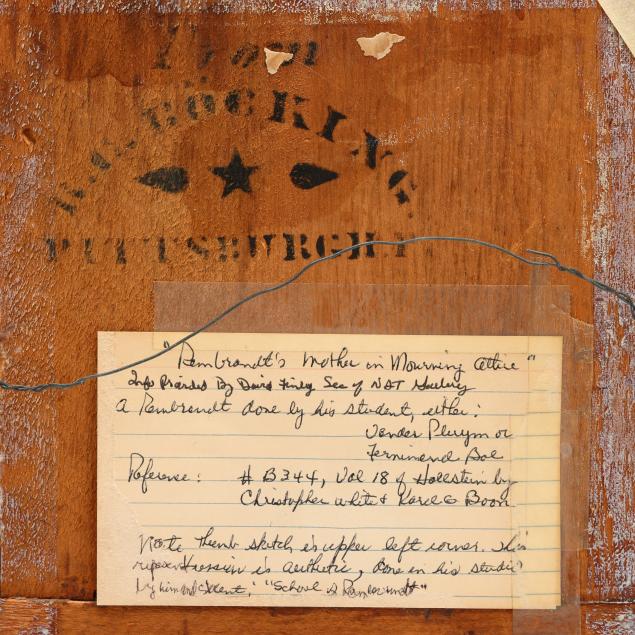 From
BÖCKING
PITTSBURGH.P
"Rembrandt's Mother in Mourning attire"
Info Provided By David Finly Sec of NAT Gallery
A Rembrandt done by his student, either:
Vander Pluym or
Ferninand Bol
Reference: # B344, Vol 18 of Hollstein by
Christopher White & Karel G Boon
Note thumb sketch is upper left corner. This
is aesthetic, done in his studio
by him and student, "School of Rembrandt"